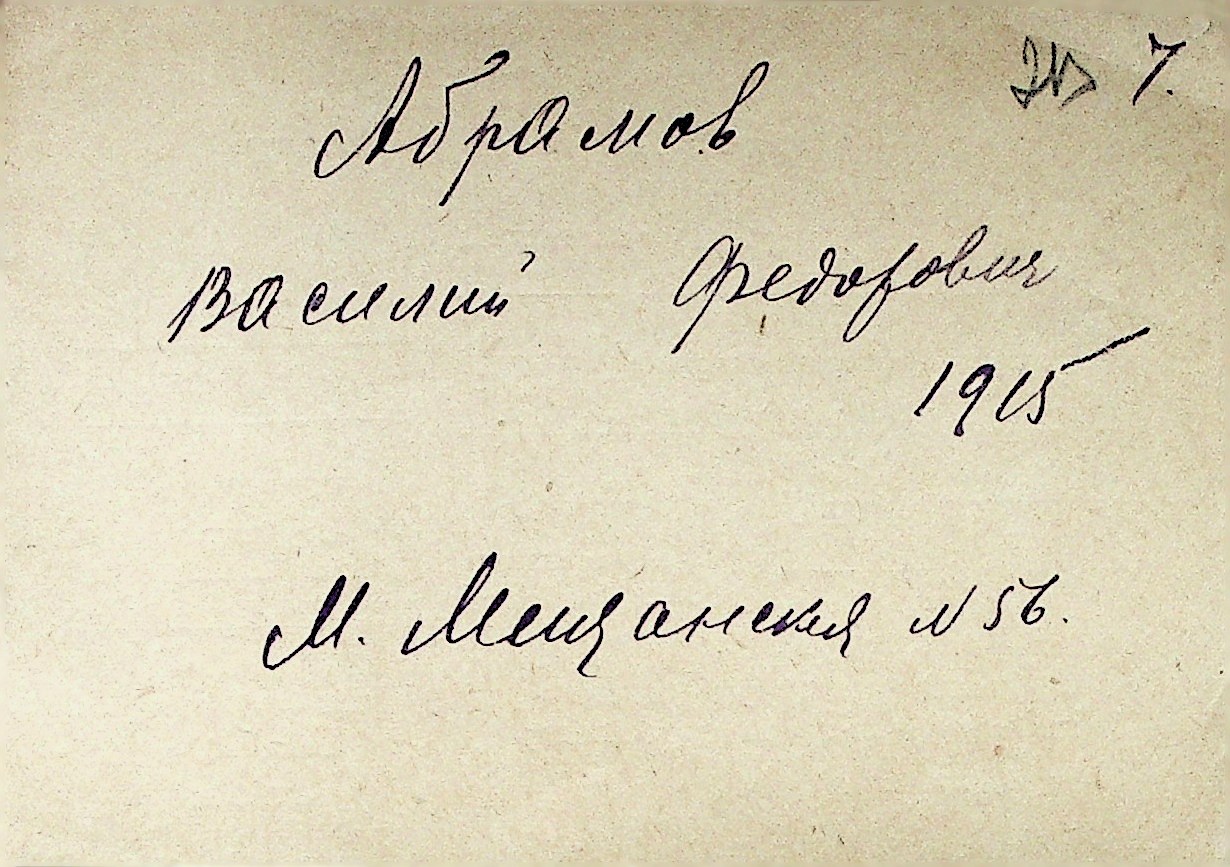 7.
Абрамов
Василий Федорович
1915
М. Мещанская № 56.